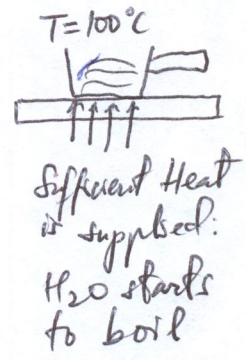 T=100°C
Sufficient Heat
is supplied:
H₂O starts
to boil